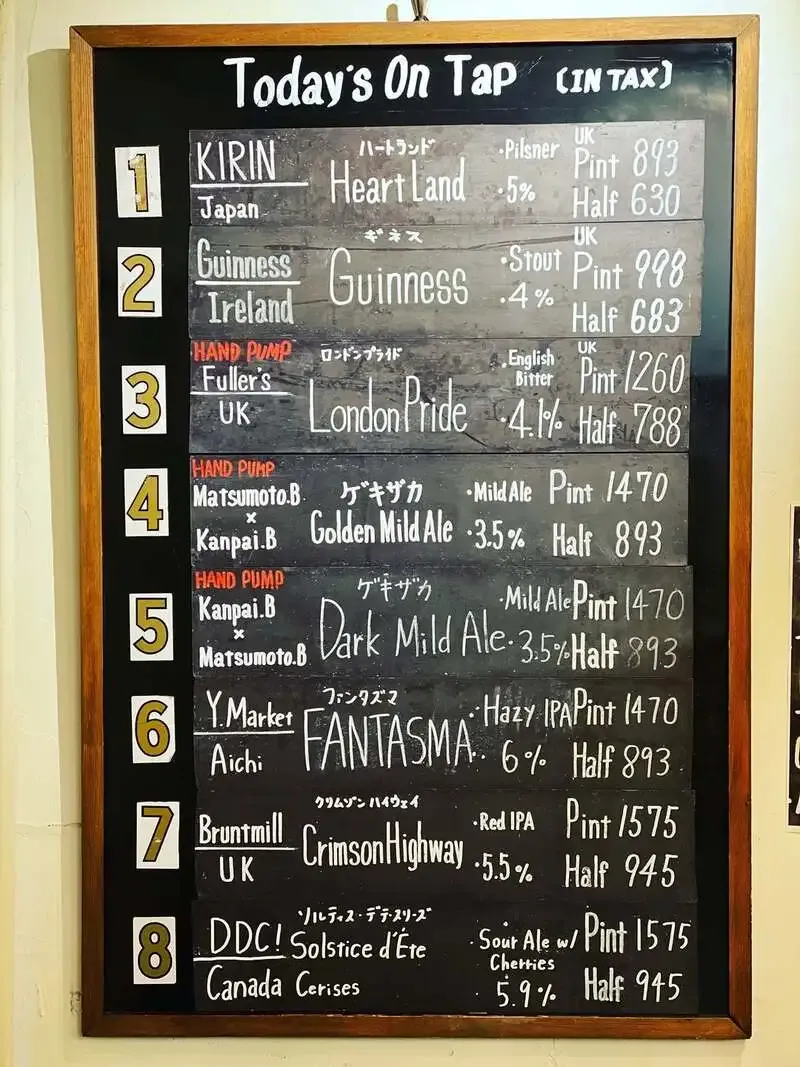 Today's On Tap (IN TAX)
1
KIRIN
Japan
ハートランド
Heart Land
・Pilsner
・5%
UK
Pint 893
Half 630
2
Guinness
Ireland
ギネス
Guinness
・Stout
・4%
UK
Pint 998
Half 683
3
HAND PUMP
Fuller's
UK
ロンドンプライド
London Pride
・English
Bitter
・4.1%
UK
Pint 1260
Half 788
4
HAND PUMP
Matsumoto.B
×
Kanpai.B
ゲキザカ
Golden Mild Ale
・Mild Ale
・3.5%
Pint 1470
Half 893
5
HAND PUMP
Kanpai.B
×
Matsumoto.B
ゲキザカ
Dark Mild Ale
・Mild Ale
・3.5%
Pint 1470
Half 893
6
Y.Market
Aichi
ファンタズマ
FANTASMA
・Hazy IPA
・6%
Pint 1470
Half 893
7
Bruntmill
UK
クリムゾンハイウェイ
Crimson Highway
・Red IPA
・5.5%
Pint 1575
Half 945
8
DDC!
Canada
ソルティス・デテ・スリーズ
Solstice d'Éte
Cerises
・Sour Ale w/
Cherries
・5.9%
Pint 1575
Half 945